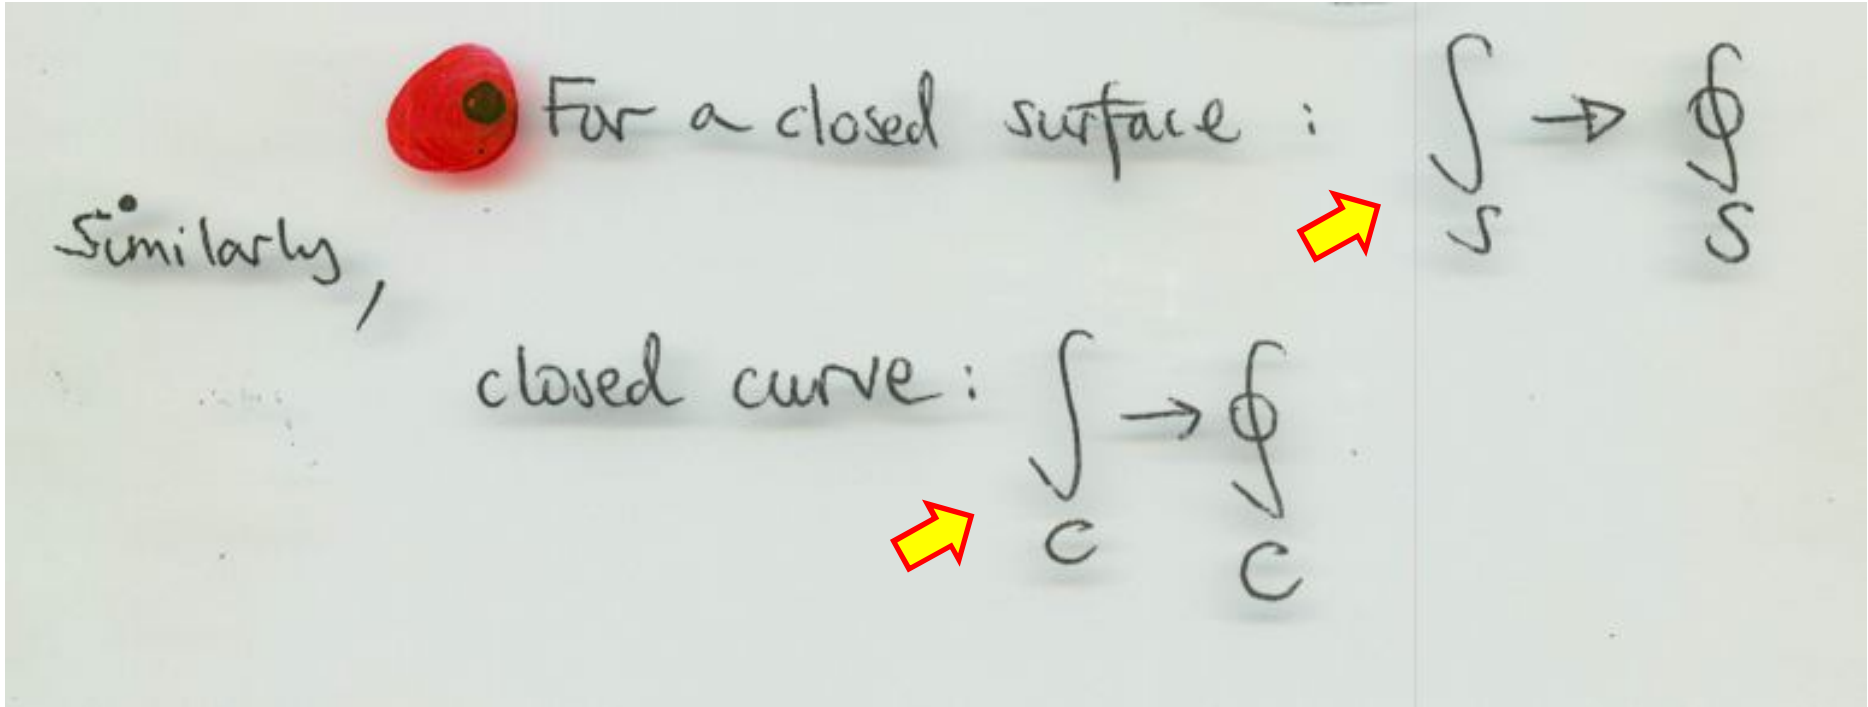 For a closed surface : ∫_S → ∮_S
Similarly,
closed curve : ∫_C → ∮_C